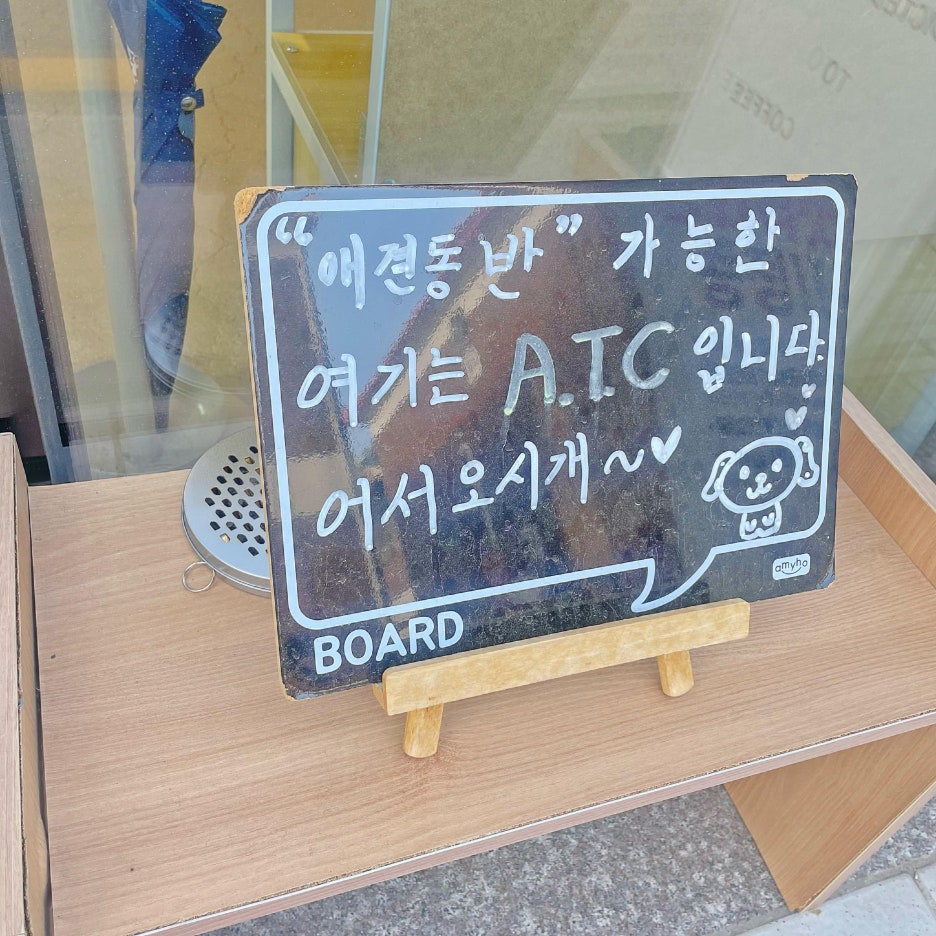 “애견동반” 가능한
여기는 A.T.C 입니다.
어서오시개~♥
amyho
BOARD
TO
COFFEE